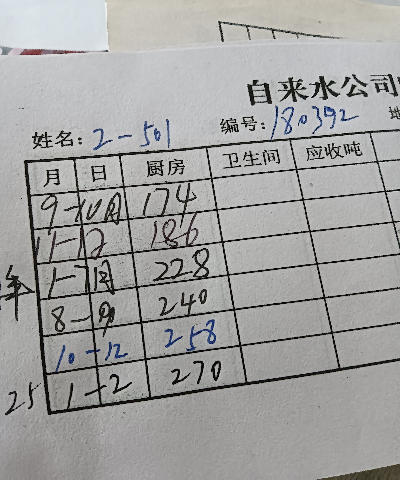 自来水公司
姓名: 2-501 编号: 180392
月 日 厨房 卫生间 应收吨
9-10月 174
11-12 186
1-7月 228
8-9 240
10-12 258
25 1-2 270